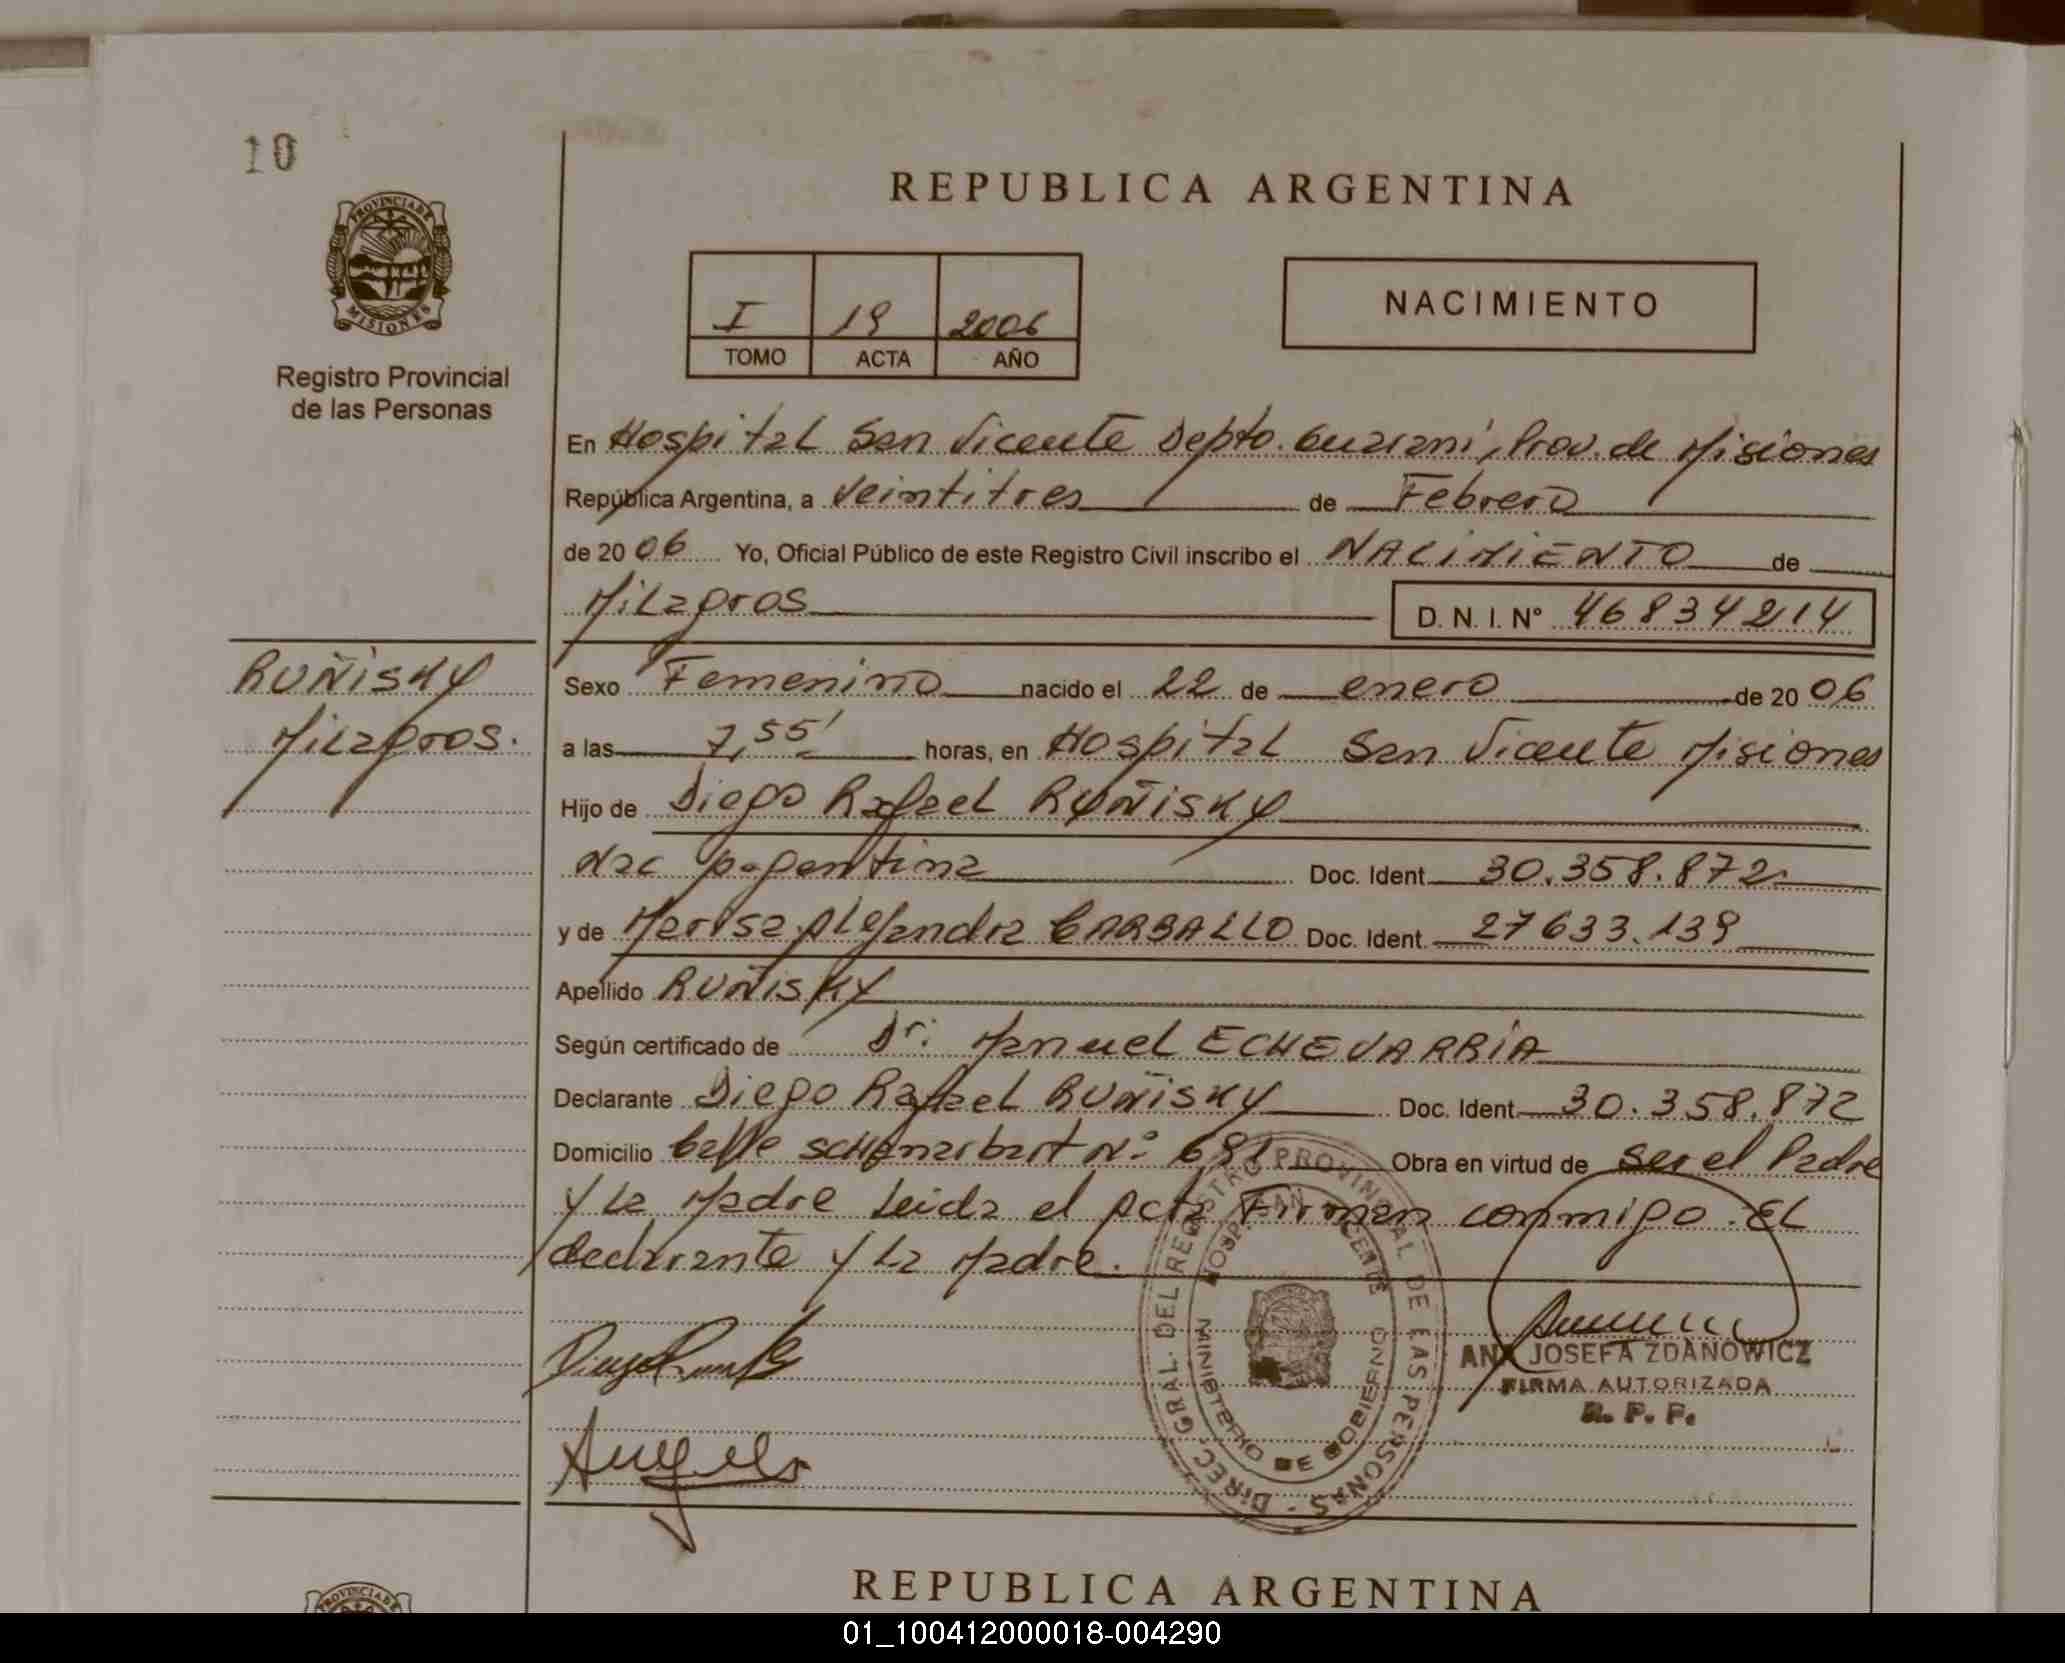 10
REPUBLICA ARGENTINA
PROVINCIA DE
MISIONES
Registro Provincial
de las Personas
I 19 2006
TOMO ACTA AÑO
NACIMIENTO
En Hospital San Vicente Depto. Guarani, Prov. de Misiones
República Argentina, a Veintitres de Febrero
de 20 06 Yo, Oficial Público de este Registro Civil inscribo el NACIMIENTO de
Milagros D. N. I. Nº 46834214
RUÑISKY
Milagros.
Sexo Femenino nacido el 22 de enero de 20 06
a las 7,55' horas, en Hospital San Vicente Misiones
Hijo de Diego Rafael RUÑISKY
Nac Argentina Doc. Ident 30.358.872
y de Marisa Alejandra CARBALLO Doc. Ident. 27633.139
Apellido RUÑISKY
Según certificado de Dr. Manuel ECHEVARRIA
Declarante Diego Rafael RUÑISKY Doc. Ident 30.358.872
Domicilio Calle Nº 691 Obra en virtud de ser el Padre
Y La Madre Leida el Acta Firman conmigo. EL
declarante Y La Madre.
DIREC. GRAL. DEL REGISTRO PROVINCIAL DE LAS PERSONAS
HOSP. SAN VICENTE
MINISTERIO DE GOBIERNO
ANA JOSEFA ZDANOWICZ
FIRMA AUTORIZADA
R. P. P.
REPUBLICA ARGENTINA
PROVINCIA DE
01_100412000018-004290